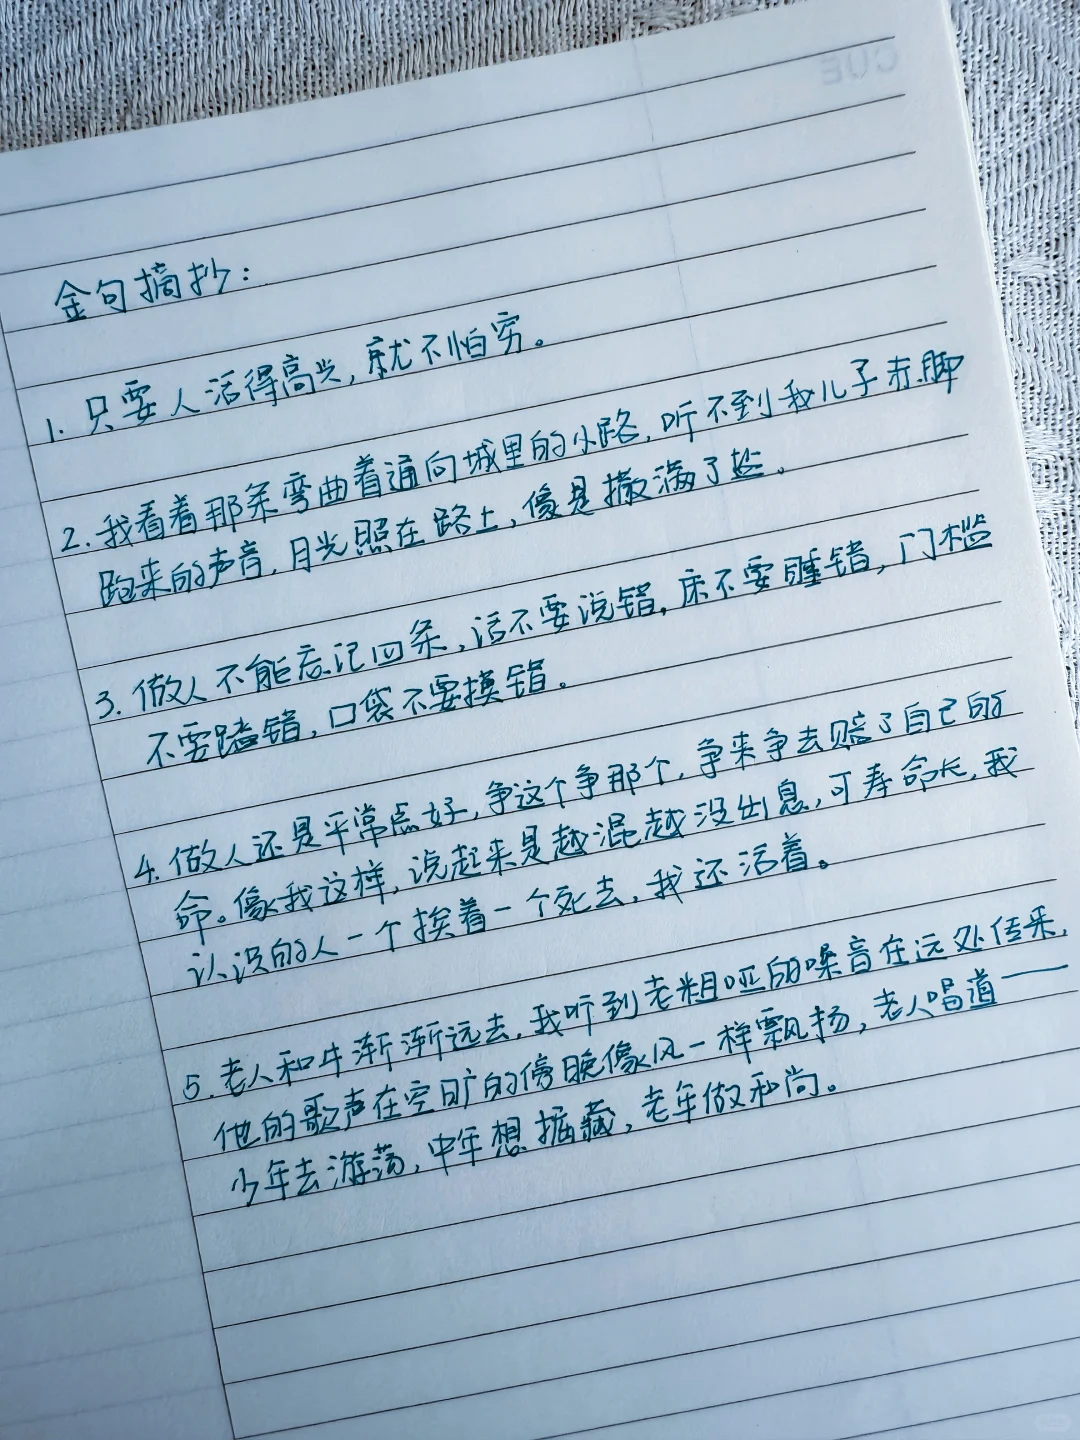 CUE
金句摘抄：
1. 只要人活得高兴，就不怕穷。
2. 我看着那条弯曲着通向城里的小路，听不到我儿子赤脚
跑来的声音，月光照在路上，像是撒满了盐。
3. 做人不能忘记四条，话不要说错，床不要睡错，门槛
不要踏错，口袋不要摸错。
4. 做人还是平常点好，争这个争那个，争来争去赔了自己的
命。像我这样，说起来是越混越没出息，可寿命长，我
认识的人一个挨着一个死去，我还活着。
5. 老人和牛渐渐远去，我听到老粗哑的嗓音在远处传来，
他的歌声在空旷的傍晚像风一样飘扬，老人唱道——
少年去游荡，中年想掘藏，老年做和尚。